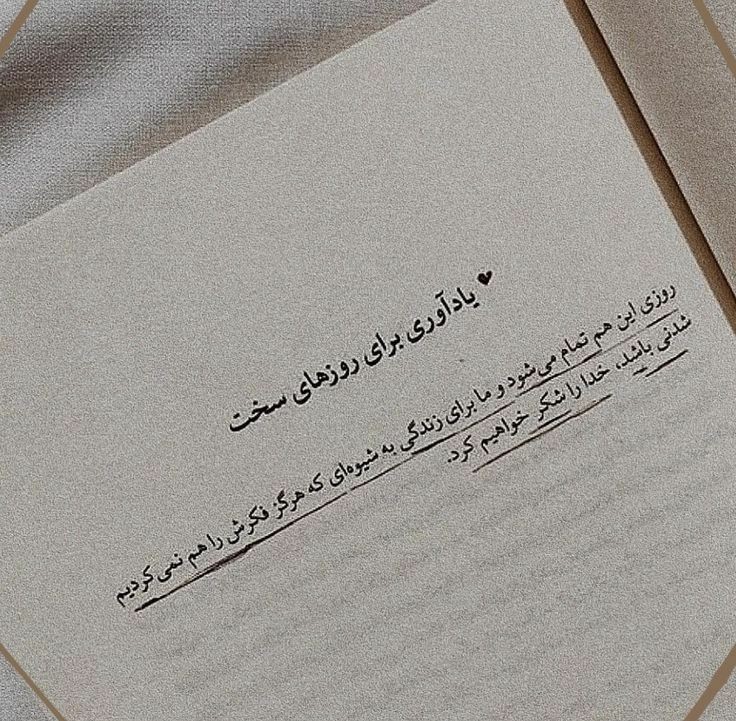 ♥ یادآوری برای روزهای سخت
روزی این هم تمام می‌شود و ما برای زندگی به شیوه‌ای که هرگز فکرش را هم نمی‌کردیم
شدنی باشد، خدا را شکر خواهیم کرد.